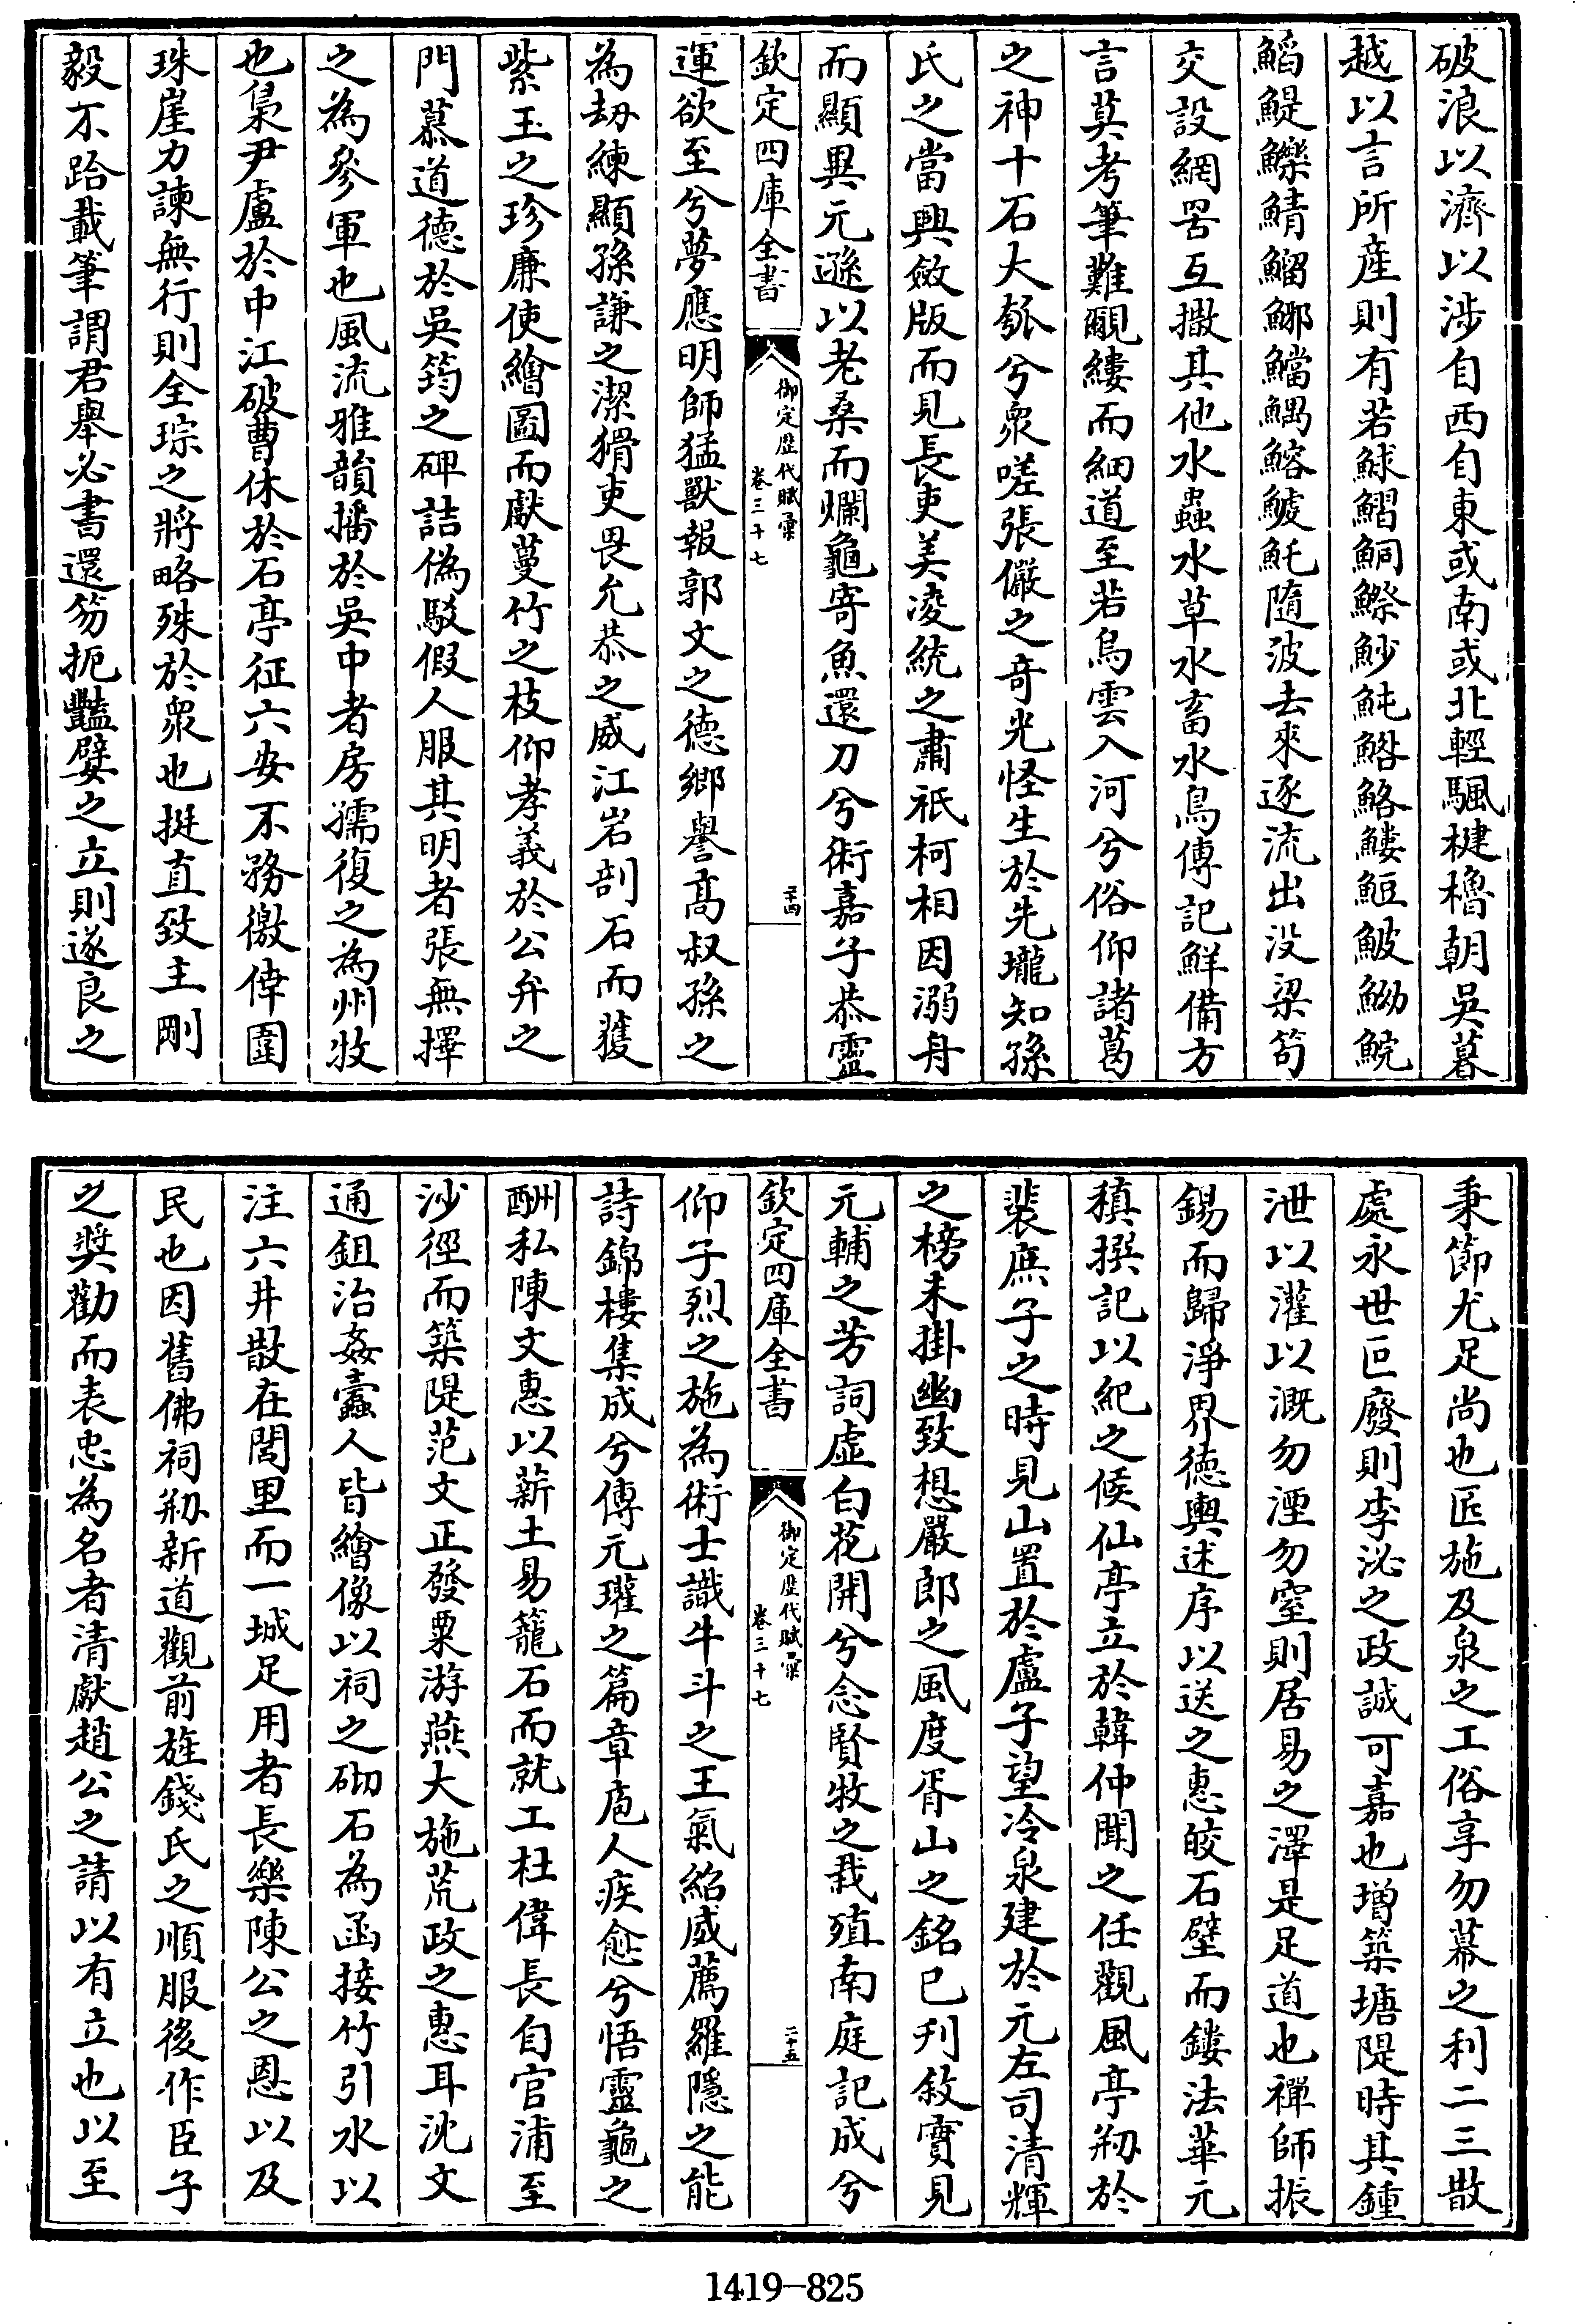 破浪以濟以涉自西自東或南或北輕颿楗櫓朝吳暮
越以言所産則有若鯄鰼鮦鰶魦魨鮥鱳魱鮍鮂鯇
鰩鯷鱳鯖鰡鰺鱨鰅鰫鯪魠隨波去來逐流出没梁笱
交設網罟互撒其他水蟲水草水畜水鳥傳記鮮備方
言莫考筆難覼縷而細道至若烏雲入河兮俗仰諸葛
之神十石大瓠兮衆嗟張儼之奇光怪生於先壠知孫
氏之當興斂版而見長吏美凌統之肅祇柯相因溺舟
而顯異元遜以老桑而爛龜寄魚還刀兮術嘉子恭靈
欽定四庫全書
御定歴代賦彙
卷三十七
二十四
運欲至兮夢應明師猛獸報郭文之德鄉譽高叔孫之
為劫練顯孫謙之潔猾吏畏允恭之威江岩剖石而獲
紫玉之珍亷使繪圖而獻蔓竹之枝仰孝義於公弁之
門慕道德於吳筠之碑詰偽駁假人服其明者張無擇
之為參軍也風流雅韻播於吳中者房孺復之為州牧
也梟尹盧於中江破曹休於石亭征六安不務徼倖圍
珠崖力諫無行則全琮之將略殊於衆也挺直致主剛
毅不跲載筆謂君舉必書還笏扼豔嬖之立則遂良之
秉節尤足尚也匠施及泉之工俗享勿幕之利二三散
處永世叵廢則李泌之政誠可嘉也増築塘隄時其鍾
泄以灌以溉勿湮勿窒則居易之澤是足道也禪師振
錫而歸淨界德輿述序以送之惠皎石壁而鏤法華元
稹撰記以紀之候仙亭立於韓仲聞之任觀風亭剏於
裴庶子之時見山置於盧子望冷泉建於元左司清輝
之榜未掛幽致想嚴郎之風度胥山之銘已刋敘實見
元輔之芳詞虚白花開兮念賢牧之栽殖南庭記成兮
欽定四庫全書
御定歴代賦彙
卷三十七
二十五
仰子烈之施為術士識牛斗之王氣紹威薦羅隱之能
詩錦樓集成兮傳元瓘之篇章庖人疾愈兮悟靈龜之
酬私陳文惠以薪土易籠石而就工杜偉長自官浦至
沙徑而築隄范文正發粟游燕大施荒政之惠耳沈文
通鉏治姦蠹人皆繪像以祠之砌石為函接竹引水以
注六井散在閭里而一城足用者長樂陳公之恩以及
民也因舊佛祠剏新道觀前旌錢氏之順服後作臣子
之奬勸而表忠為名者清獻趙公之請以有立也以至
1419-825